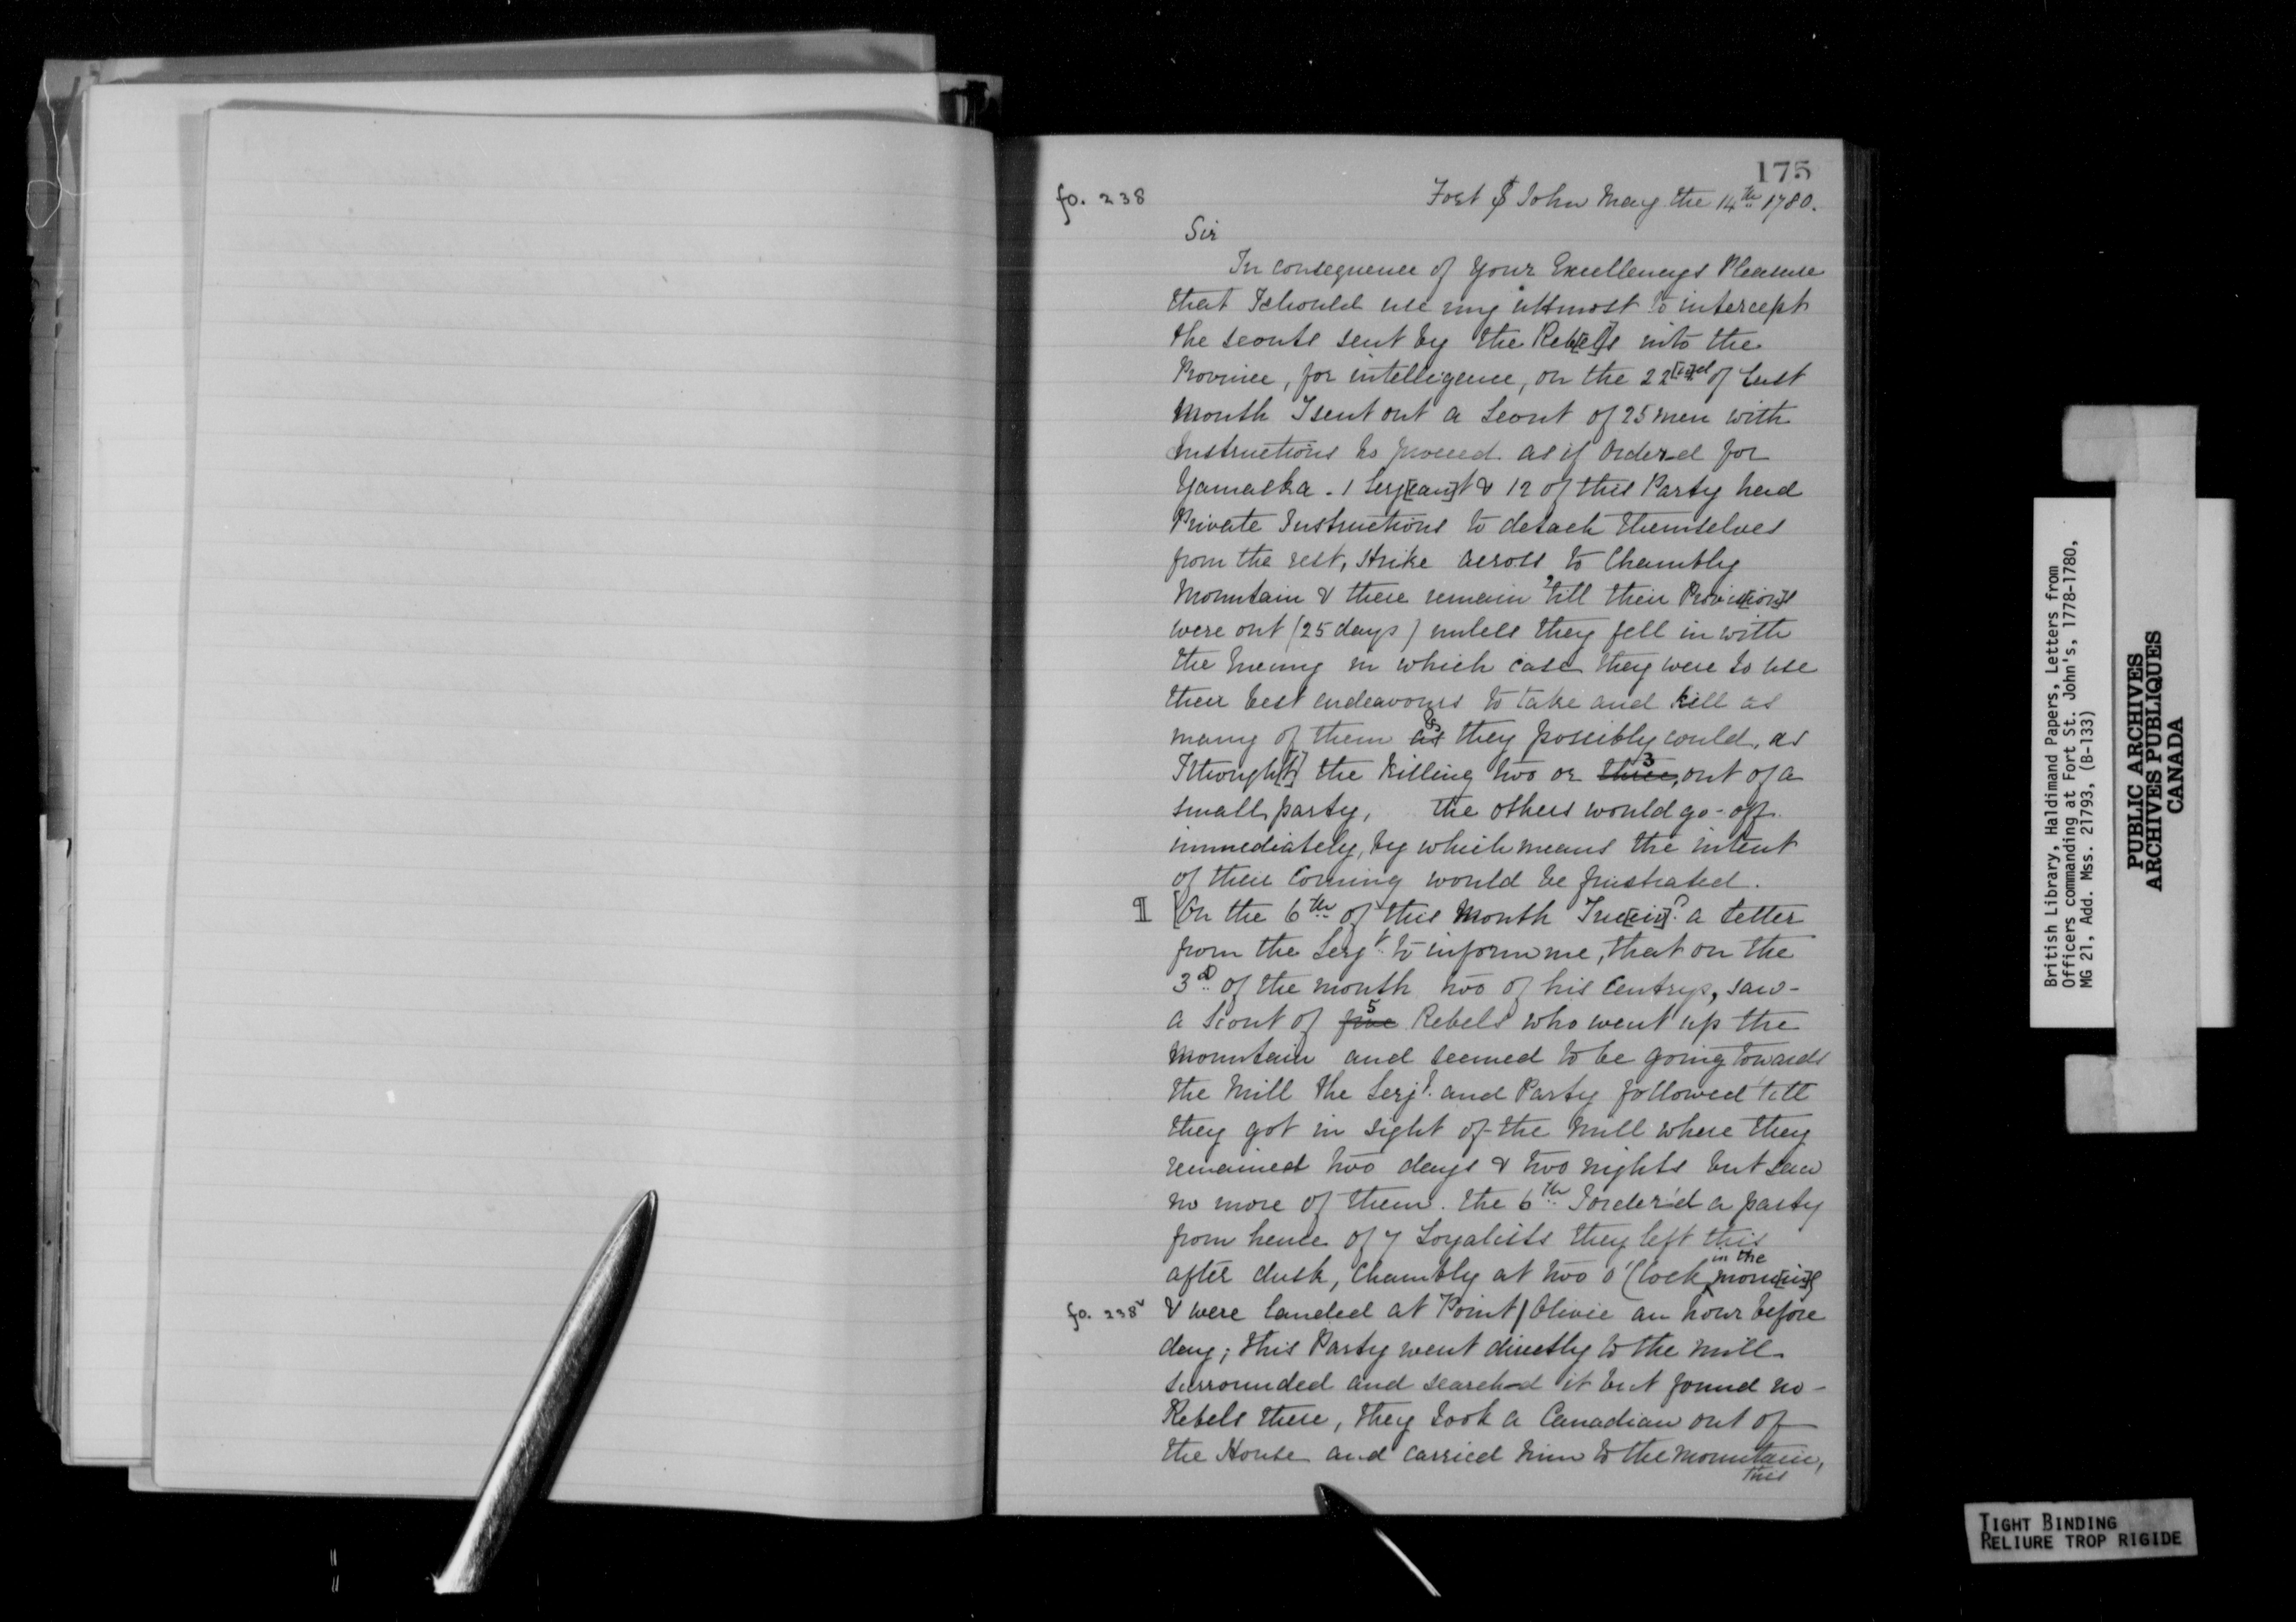 175
fo. 238
Fort St John May the 14th 1780.
Sir
In consequence of Your Excellencys Pleasure
that I should use my uttmost to intercept
the scouts sent by the Reb[el]s into the
Province, for intelligence, on the 22[n]d of Last
Month I sent out a Scout of 25 men with
Instructions to proceed as if Ordered for
Yamaska. 1 Serj[ean]t & 12 of this Party had
Private Instructions to detach themselves
from the rest, Strike across to Chambly
Mountain & there remain 'till their Provi[sion]s
were out (25 days) unless they fell in with
the Enemy in which case they were to use
their best endeavours to take and kill as
many of them as they possibly could, as
I though[t] the killing two or three 3, out of a
small party, the others would go-off
immediately, by which means the intent
of their Coming would be frustrated.
¶ [On the 6th of this Month I rec[eiv]d a Letter
from the Serjt to inform me, that on the
3d of the month two of his Centrys, saw-
a Scout of five 5 Rebels who went up the
Mountain and seemed to be going towards
the Mill the Serjt. and Party followed 'till
they got in sight of the Mill where they
remained two days & two nights but saw
no more of them. The 6th I order'd a party
from hence of 7 Loyalists they left this
after dusk, Chambly at two o'Clock in the morn[in]g
fo. 238v
& were landed at Point / Olivie an hour before
day; this Party went directly to the Mill
surrounded and searched it but found no-
Rebels there, they took a Canadian out of
the House and carried him to the Mountain,
this
British Library, Haldimand Papers, Letters from
Officers commanding at Fort St. John's, 1778-1780,
MG 21, Add. Mss. 21793, (B-133)
PUBLIC ARCHIVES
ARCHIVES PUBLIQUES
CANADA
TIGHT BINDING
RELIURE TROP RIGIDE